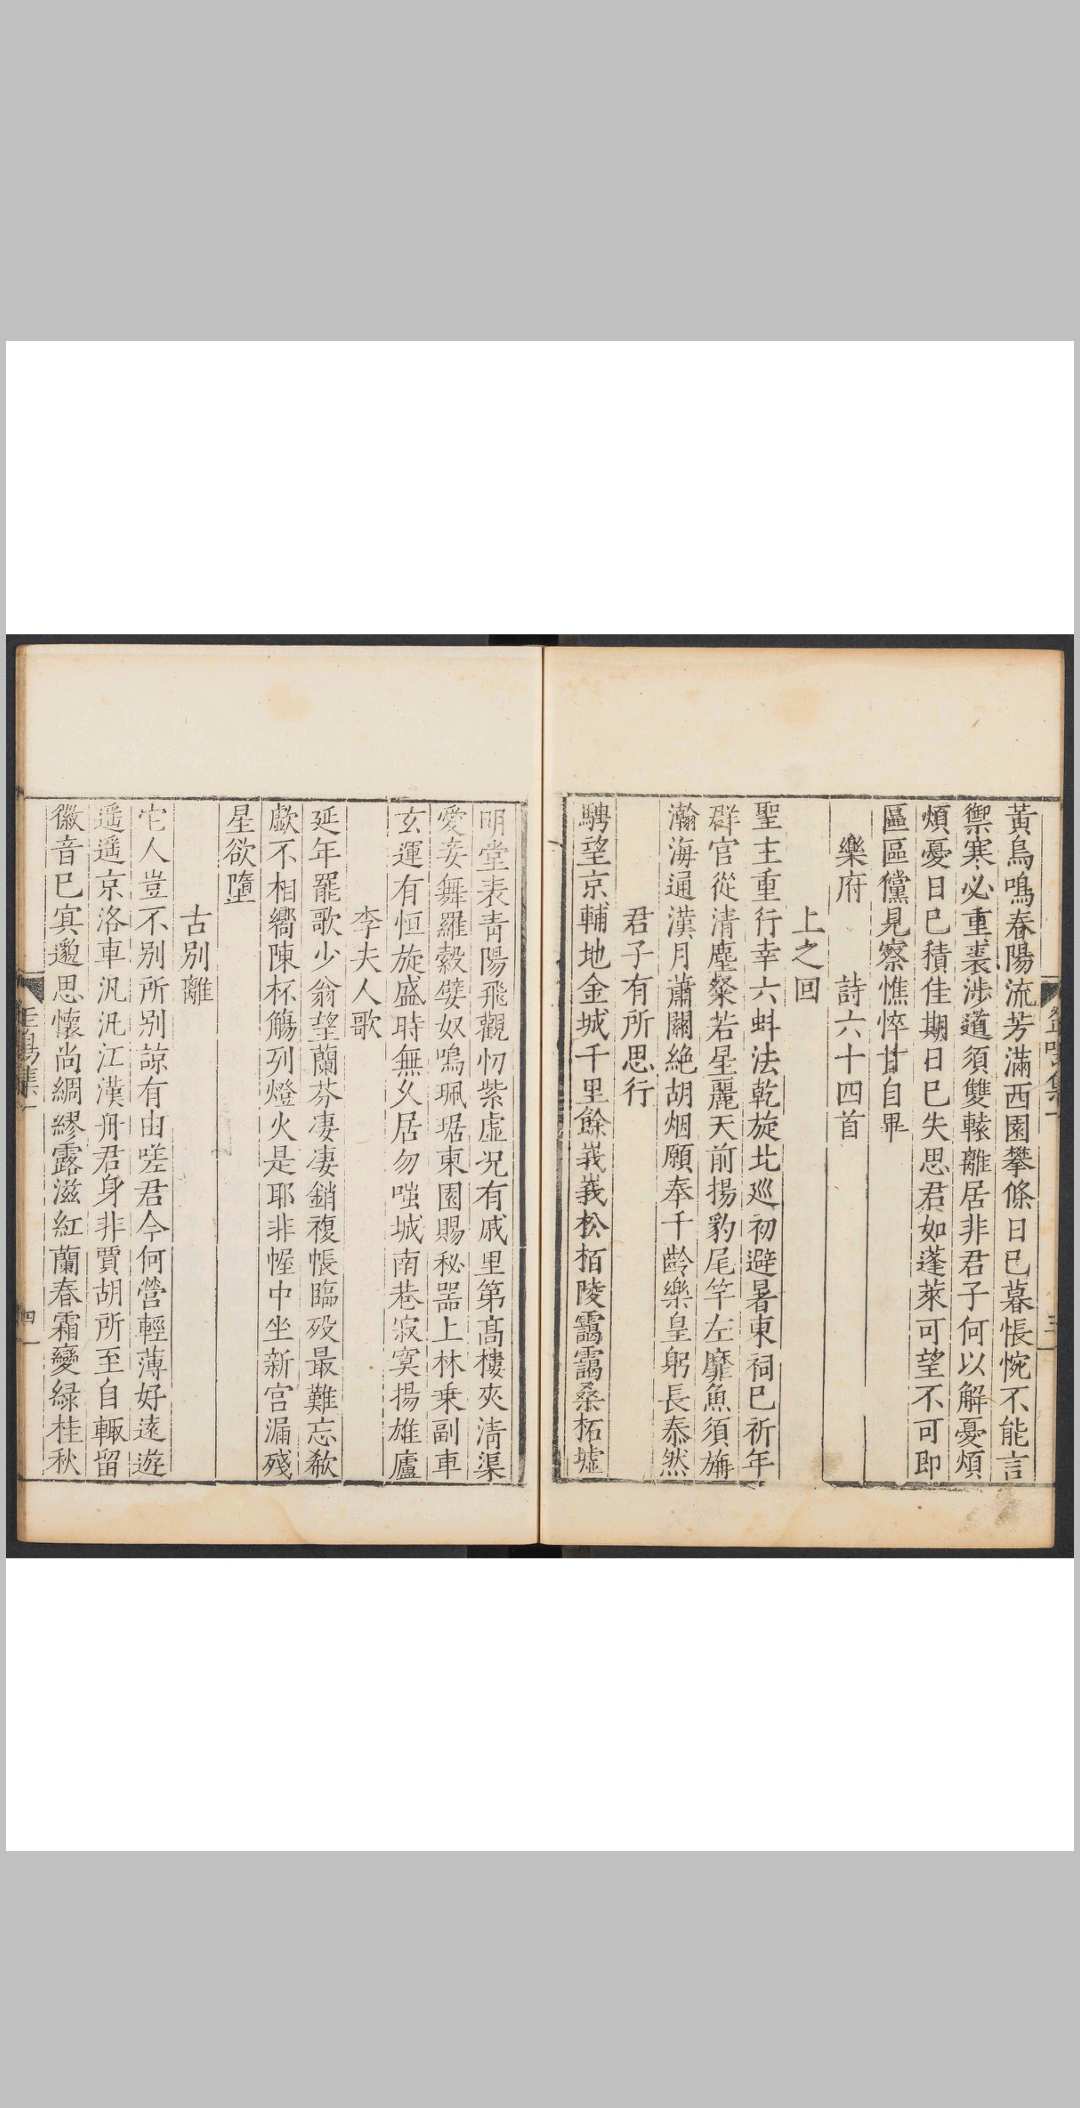 黃鳥鳴春陽流芳滿西園攀條日已暮悵惋不能言
禦寒必重裘涉道須雙轅離居非君子何以解憂煩
煩憂日已積佳期日已失思君如蓬萊可望不可即
區區儻見察憔悴甘自畢
樂府 詩六十四首
上之回
聖主重行幸六蚪法乾旋北巡初避暑東祠已祈年
群官從清塵粲若星麗天前揚豹尾竿左靡魚須旃
瀚海通漢月蕭關絶胡烟願奉千齡樂皇躬長泰然
君子有所思行
騁望京輔地金城千里餘峩峩松栢陵靄靄桑柘墟
明堂表青陽飛觀切紫虛况有戚里第高樓夾清渠
愛妾舞羅縠嬖奴鳴珮琚東園賜秘器上林乗副車
玄運有恒旋盛時無乆居勿嗤城南巷寂寞揚雄廬
李夫人歌
延年罷歌少翁望蘭芬凄凄銷複帳臨殁最難忘欷
歔不相嚮陳杯觴列燈火是耶非幄中坐新宫漏殘
星欲墮
古別離
它人豈不别所别諒有由嗟君今何營輕薄好遠遊
遥遥京洛車汎汎江漢舟君身非賈胡所至自輙留
徽音已寘邈思懷尚綢繆露滋紅蘭春霜變緑桂秋
四